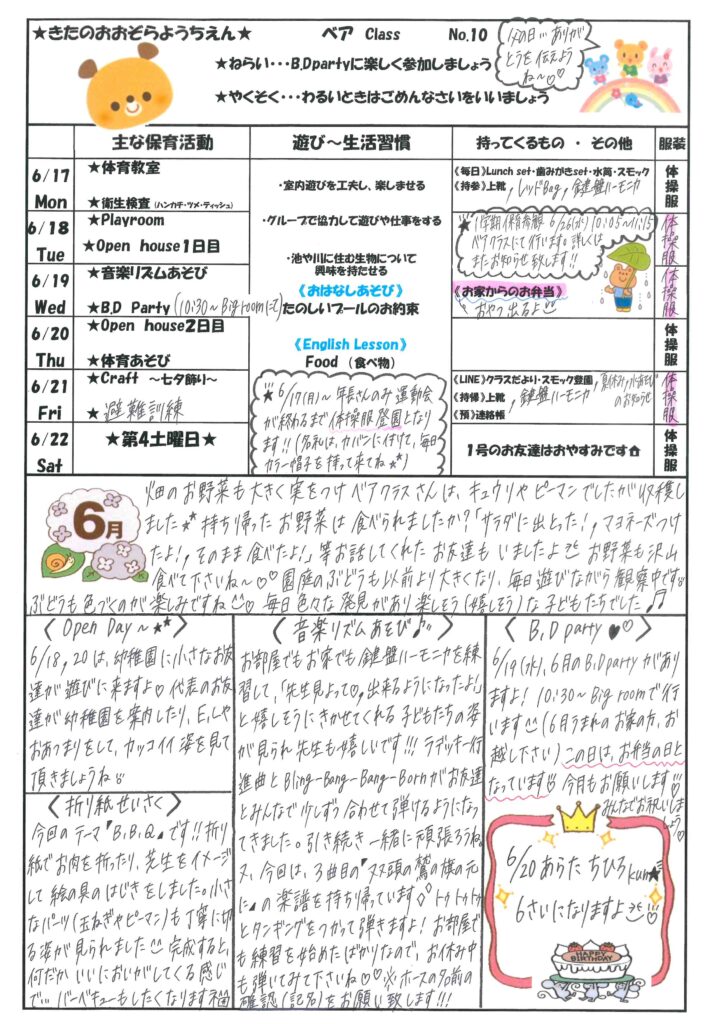 ★きたのおおぞらようちえん★
ベア Class No.10
父の日…ありが
とうを伝えよう
ね〜♡♡
★ねらい・・・B.Dpartyに楽しく参加しましょう
★やくそく・・・わるいときはごめんなさいをいいましょう
主な保育活動
遊び〜生活習慣
持ってくるもの ・ その他
服装
6/17
Mon
★体育教室
★衛生検査(ハンカチ・ツメ・ティッシュ)
6/18
Tue
★Playroom
★Open house1日目
6/19
Wed
★音楽リズムあそび
★B.D Party(10:30〜Big roomにて)
6/20
Thu
★Open house2日目
★体育あそび
6/21
Fri
★Craft 〜七夕飾り〜
★避難訓練
6/22
Sat
★第4土曜日★
・室内遊びを工夫し、楽しませる
・グループで協力して遊びや仕事をする
・池や川に住む生物について
興味を持たせる
《おはなしあそび》
たのしいプールのお約束
《English Lesson》
Food (食べ物)
★6/17(月)〜年長さんのみ運動会
が終わるまで体操服登園となり
ます!!(名札は、カバンに付けて、毎日
カラー帽子を持って来てね★★)
《毎日》Lunch set・歯みがきset・水筒・スモック
《持参》上靴,レッドBag,鍵盤ハーモニカ
★1学期保育参観 6/26(水)10:05〜11:15
ベアクラスにて行います。詳しくは
またお知らせ致します!!
《お家からのお弁当》
おやつ出るよ
《LINE》クラスだより・スモック登園,夏休み,水あそび
のお知らせ
《持帰》上靴,鍵盤ハーモニカ
《預》連絡帳
1号のお友達はおやすみです
体操服
体操服
体操服
体操服
体操服
体操服
6月
畑のお野菜も大きく実をつけベアクラスさんは、キュウリやピーマンでしたが収穫し
ました★★持ち帰ったお野菜は食べられましたか?「サラダに出とった!,マヨネーズつけ
たよ!,そのまま食べたよ!」等お話してくれたお友達もいましたよ お野菜も沢山
食べて下さいね〜♡♡園庭のぶどうも以前より大きくなり、毎日遊びながら観察中です
ぶどうも色づくのが楽しみですね♡毎日色々な発見があり楽しそう(嬉しそう)な子どもたちでした♫
〈Open Day〜★★〉
6/18,20は、幼稚園に小さなお友
達が遊びに来ますよ♡代表のお友
達が幼稚園を案内したり、E.Lや
おあつまりをして、カッコイイ姿を見て
頂きましょうね
〈折り紙せいさく〉
今回のテーマ『B.B.Q』です!!折り
紙でお肉を折ったり、芝生をイメージ
して絵の具のはじきをしました。小さ
なパーツ(玉ねぎやピーマン)も丁寧に切
る姿が見られました 完成すると、
何だかいいにおいがしてくる感じ
で…バーベキューもしたくなります
〈音楽リズムあそび♪〉
お部屋でもお家でも鍵盤ハーモニカを練
習して、「先生見よって♡,出来るようになったよ!」
と嬉しそうにきかせてくれる子どもたちの姿
が見られ先生も嬉しいです!!!ラデツキー行
進曲とBling-Bang-Bang-Bornがお友達
とみんなで少しずつ合わせて弾けるようになっ
てきました。引き続き一緒に頑張ろうね。
又、今回は、3曲目の『双頭の鷲の旗の元
に』の楽譜を持ち帰っています◇トゥトゥトゥ
とタンギングをつかって弾きますよ!お部屋で
も練習を始めたばかりなので、お休み中
も弾いてみて下さいね♡♡※ホースの名前の
確認(記名)をお願い致します!!!
〈B,D party♥♡〉
6/19(水)、6月のB,Dpartyがあり
ますよ! 10:30〜Big roomで行
います(6月うまれのお家の方、お
越し下さい)この日は、お弁当の日と
なっています 今月もお願いします!!!
みんなでお祝いしましょう♡
6/20あらた ちひろkun★
6さいになりますよ!!♡
HAPPY
BIRTHDAY